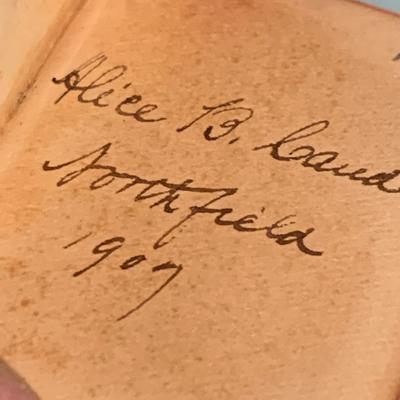 Alice B.
Northfield
1907